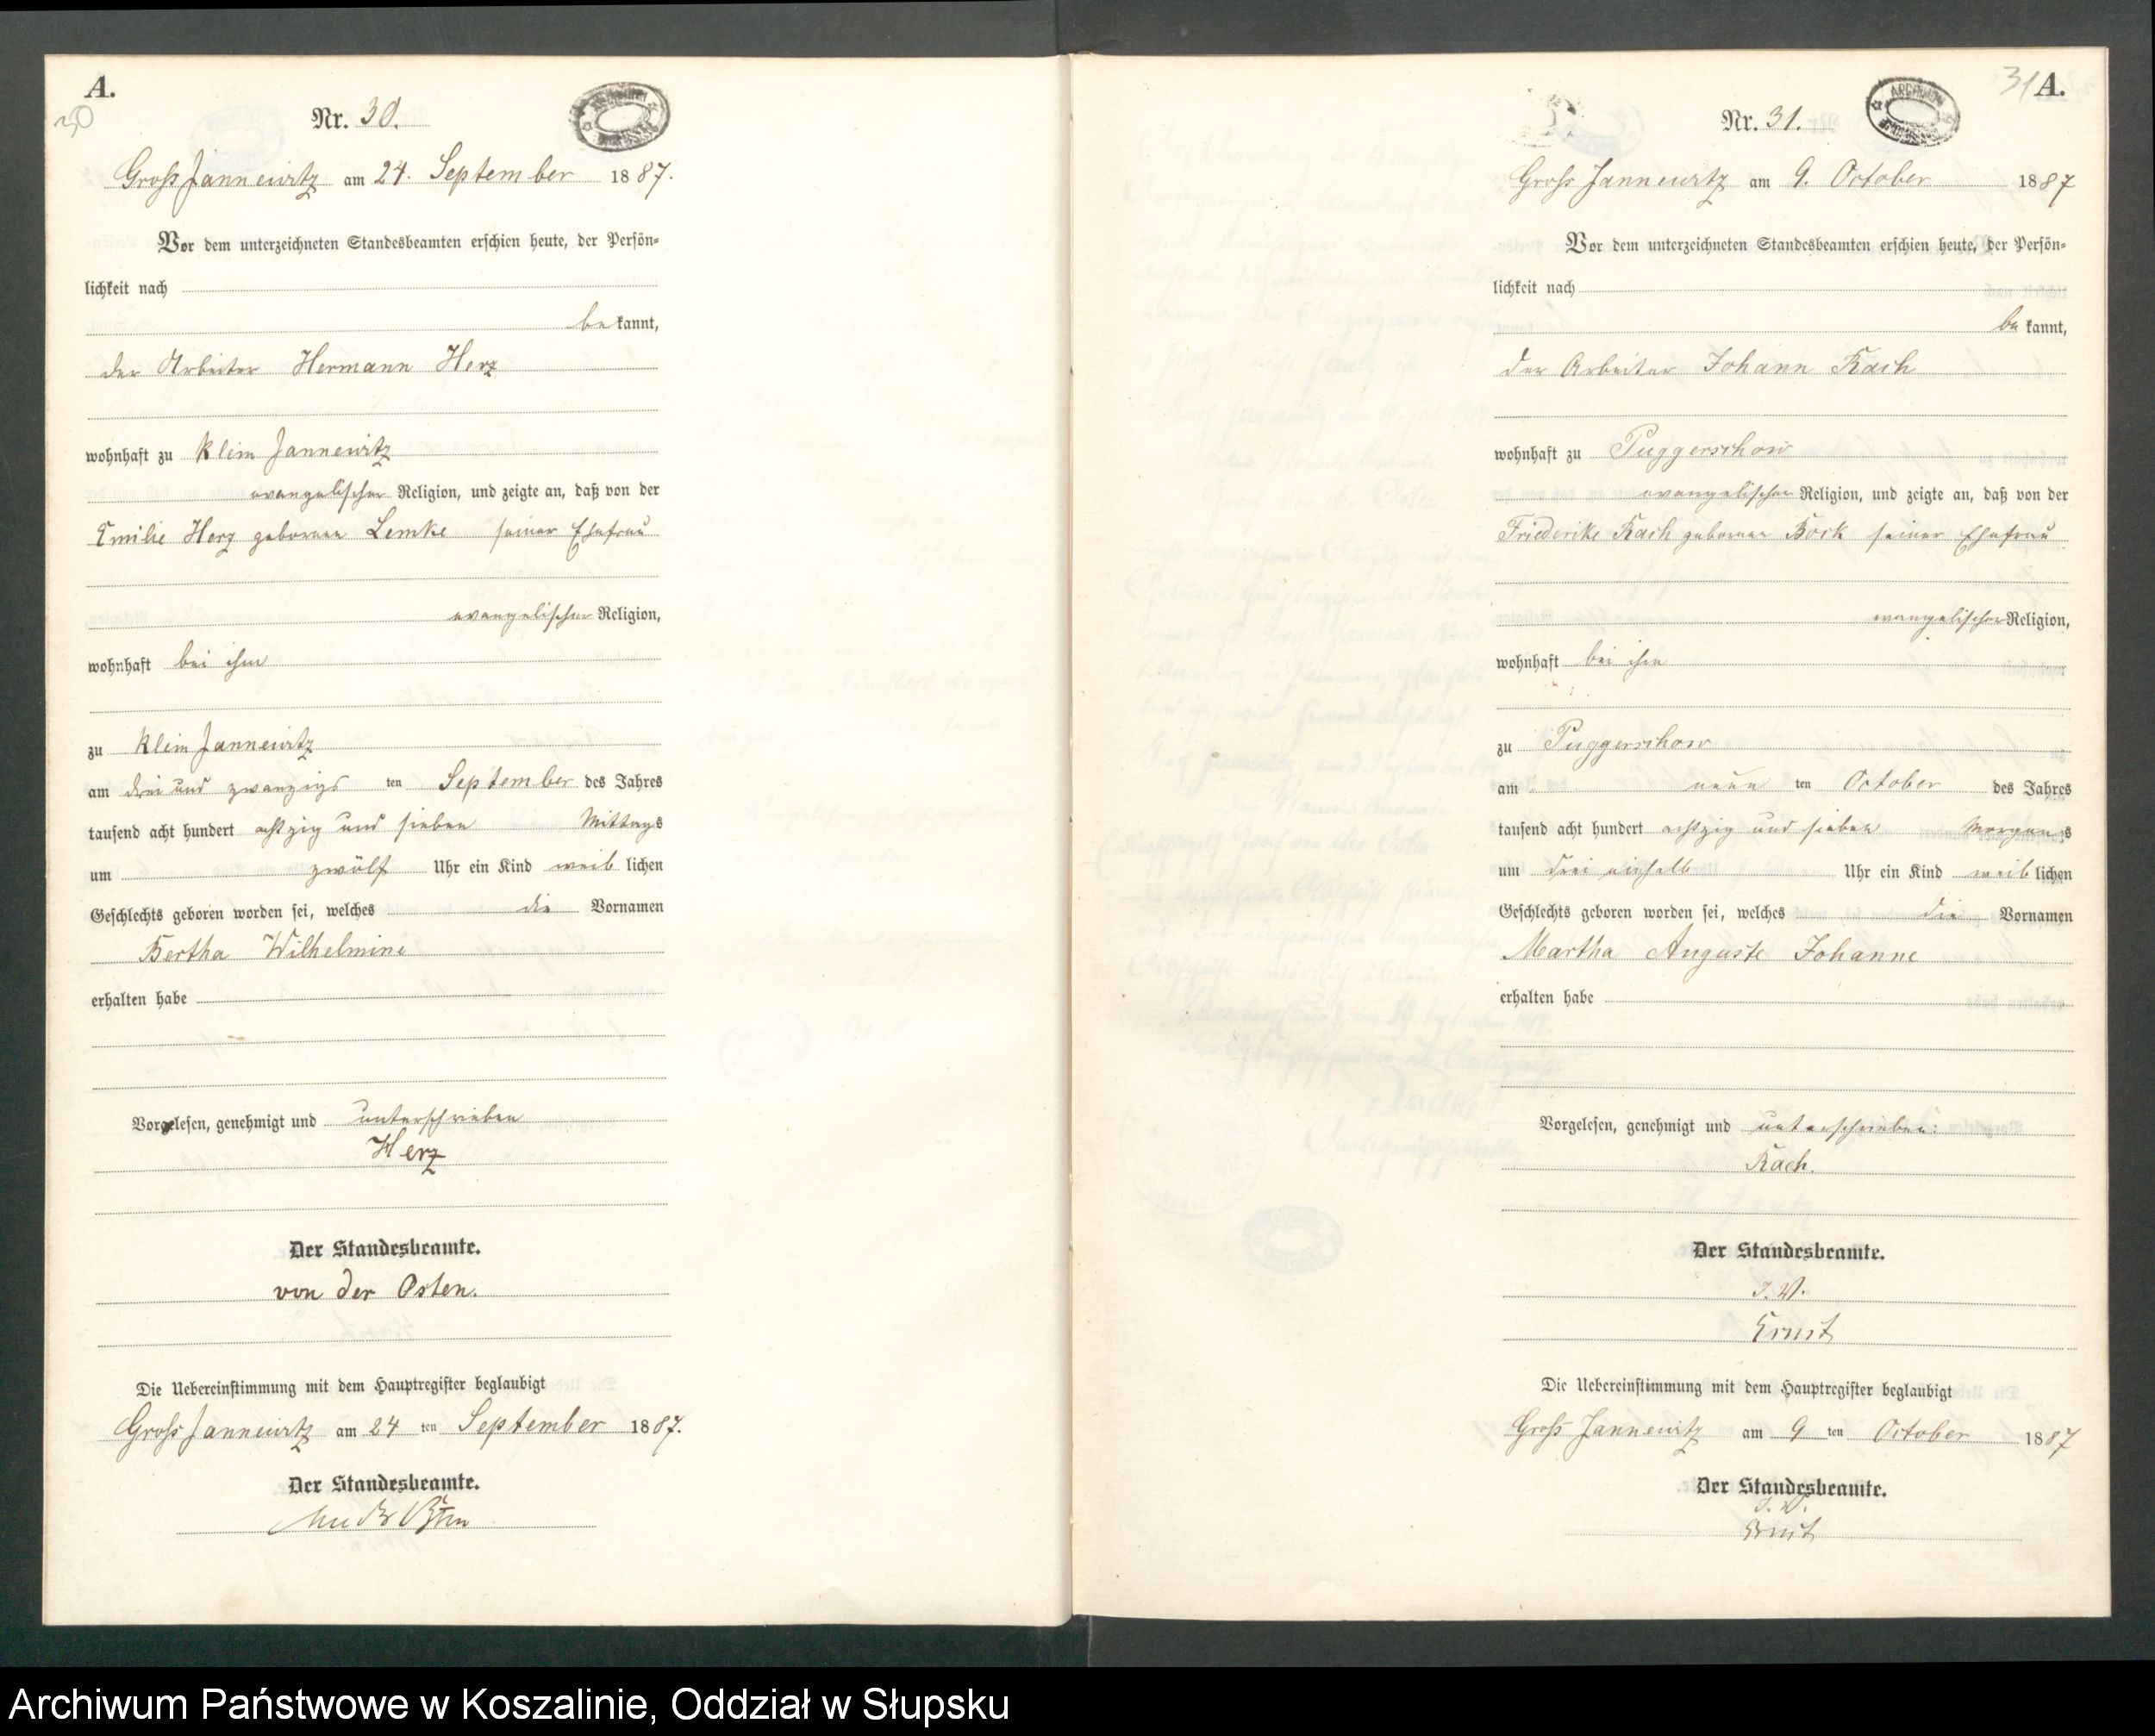 A.
30
Nr. 30.
Groß Jannewitz am 24. September 1887.
Vor dem unterzeichneten Standesbeamten erschien heute, der Persön-
lichkeit nach
be kannt,
der Arbeiter Hermann Herz
wohnhaft zu Klein Jannewitz
evangelischer Religion, und zeigte an, daß von der
Emilie Herz geborenen Lemke seiner Ehefrau
evangelischer Religion,
wohnhaft bei ihm
zu Klein Jannewitz
am drei und zwanzigs ten September des Jahres
tausend acht hundert achtzig und sieben Mittags
um zwölf Uhr ein Kind weib lichen
Geschlechts geboren worden sei, welches die Vornamen
Bertha Wilhelmine
erhalten habe
Vorgelesen, genehmigt und unterschrieben
Herz
Der Standesbeamte.
von der Osten.
Die Uebereinstimmung mit dem Hauptregister beglaubigt
Groß Jannewitz am 24 ten September 1887.
Der Standesbeamte.
von der Osten
31 A.
Nr. 31.
Groß Jannewitz am 9. October 1887
Vor dem unterzeichneten Standesbeamten erschien heute, der Persön-
lichkeit nach
be kannt,
der Arbeiter Johann Rach
wohnhaft zu Puggerschow
evangelischer Religion, und zeigte an, daß von der
Friederike Rach geborenen Bock seiner Ehefrau
evangelischer Religion,
wohnhaft bei ihm
zu Puggerschow
am neun ten October des Jahres
tausend acht hundert achtzig und sieben Morgens
um drei einhalb Uhr ein Kind weib lichen
Geschlechts geboren worden sei, welches die Vornamen
Martha Auguste Johanne
erhalten habe
Vorgelesen, genehmigt und unterschrieben:
Rach.
Der Standesbeamte.
I. V.
Ernst
Die Uebereinstimmung mit dem Hauptregister beglaubigt
Groß Jannewitz am 9 ten October 1887
Der Standesbeamte.
I. V.
Ernst
Archiwum Państwowe w Koszalinie, Oddział w Słupsku